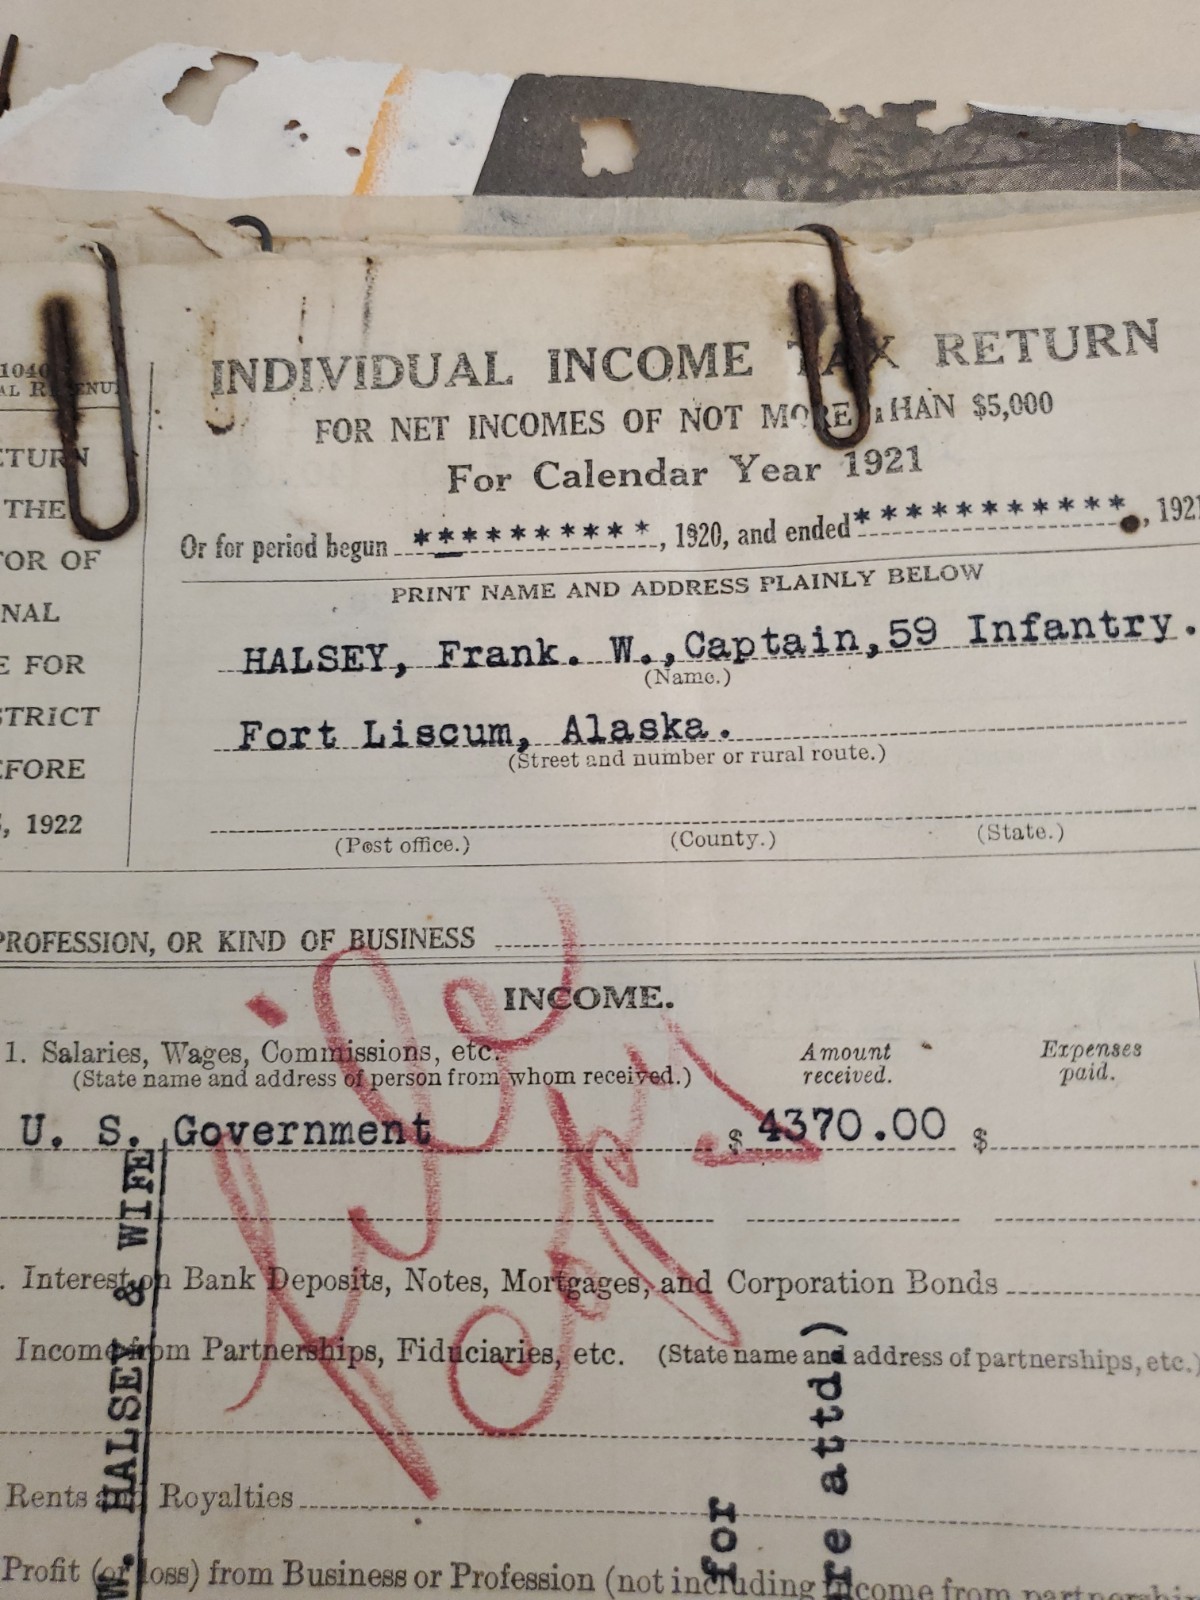 1040
INDIVIDUAL INCOME TAX RETURN
FOR NET INCOMES OF NOT MORE THAN $5,000
For Calendar Year 1921
Or for period begun ********** , 1920, and ended *********** , 1921
PRINT NAME AND ADDRESS PLAINLY BELOW
HALSEY, Frank. W., Captain, 59 Infantry.
(Name.)
Fort Liscum, Alaska.
(Street and number or rural route.)
(Post office.) (County.) (State.)
THE
OR OF
NAL
E FOR
STRICT
EFORE
, 1922
PROFESSION, OR KIND OF BUSINESS
INCOME.
1. Salaries, Wages, Commissions, etc.
(State name and address of person from whom received.)
Amount received.
Expenses paid.
U. S. Government $ 4370.00 $
File Copy
Interest on Bank Deposits, Notes, Mortgages, and Corporation Bonds
Income from Partnerships, Fiduciaries, etc. (State name and address of partnerships, etc.)
Rents and Royalties
Profit (or loss) from Business or Profession (not including income from partnership
W. HALSEY & WIFE
for
re attd)